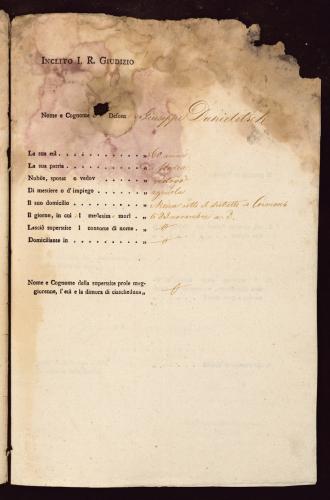 INCLITO I. R. GIUDIZIO
Nome e Cognome Defont Giuseppe
La sua età . . . . . . . . . . . . . . „ 60 anni
La sua patria . . . . . . . . . . . . „
Nubile, sposat o vedov . . . . . . . . „ vedovo
Di mestiere o d'impiego . . . . . . . . „ agricola
Il suo domicilio . . . . . . . . . . . „ sotto il distretto di Cormons
Il giorno, in cui l medesim morì . „ 6 novembre a. d.
Lasciò superstite l consorte di nome . „ 0
Domiciliante in . . . . . . . . . . . „ 0
Nome e Cognome della superstite prole mag-
giorenne, l'età e la dimora di ciascheduna „ 0